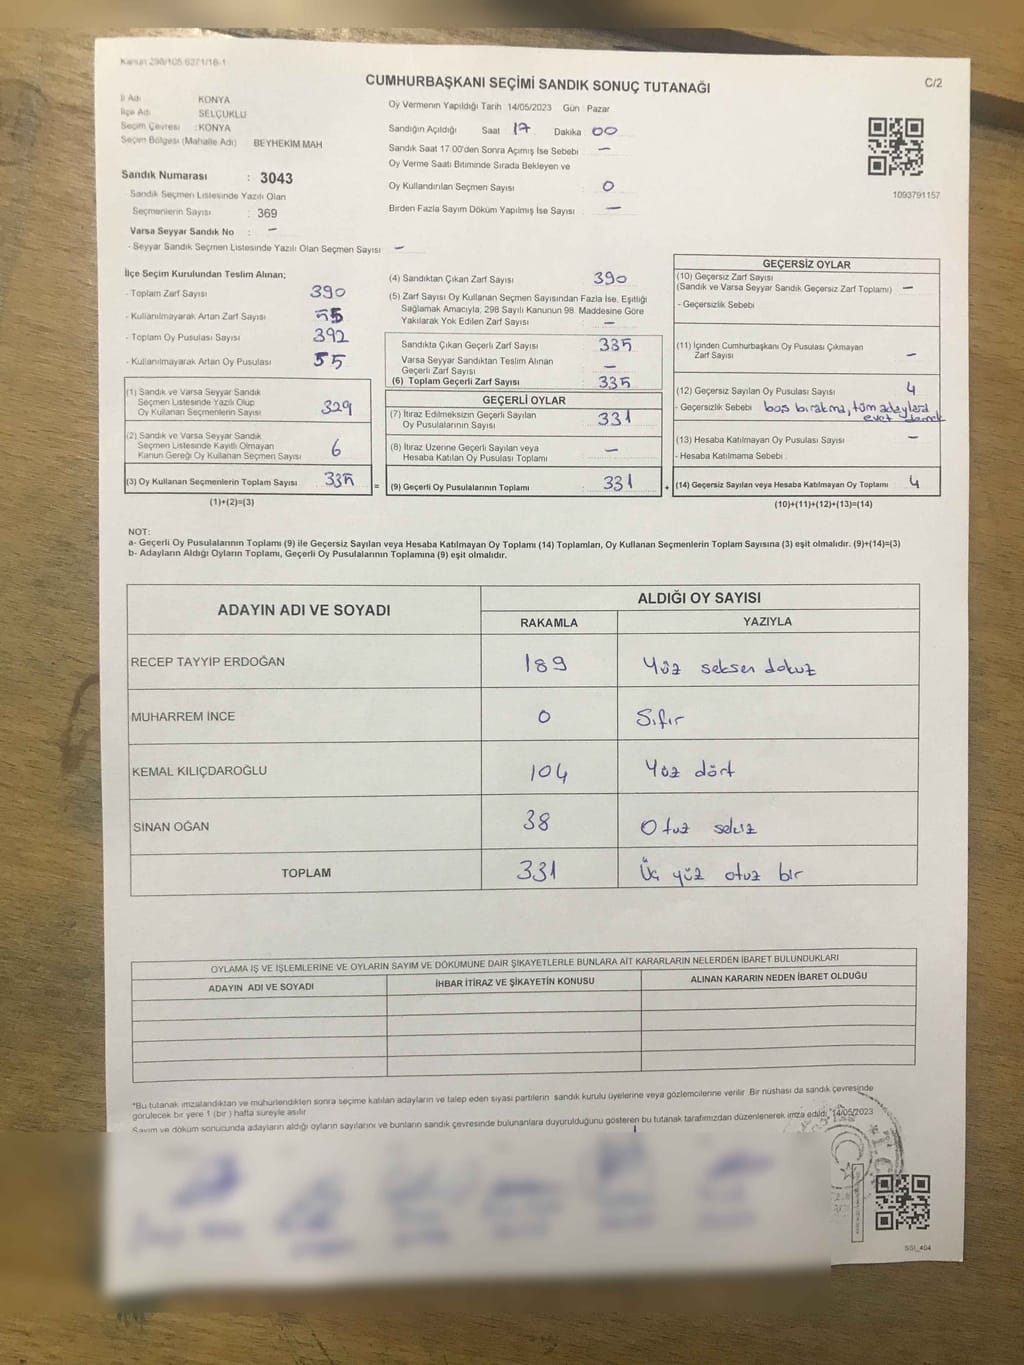 Kanun 298/105,6271/18-1
C/2
CUMHURBAŞKANI SEÇİMİ SANDIK SONUÇ TUTANAĞI
İl Adı KONYA
İlçe Adı SELÇUKLU
Seçim Çevresi : KONYA
Seçim Bölgesi (Mahalle Adı) BEYHEKİM MAH
Sandık Numarası : 3043
Sandık Seçmen Listesinde Yazılı Olan
Seçmenlerin Sayısı : 369
Varsa Seyyar Sandık No : —
- Seyyar Sandık Seçmen Listesinde Yazılı Olan Seçmen Sayısı —
Oy Vermenin Yapıldığı Tarih 14/05/2023 Gün Pazar
Sandığın Açıldığı Saat 17 Dakika 00
Sandık Saat 17:00'den Sonra Açımış İse Sebebi —
Oy Verme Saati Bitiminde Sırada Bekleyen ve
Oy Kullandırılan Seçmen Sayısı : 0
Birden Fazla Sayım Döküm Yapılmış İse Sayısı : —
1093791157
İlçe Seçim Kurulundan Teslim Alınan;
- Toplam Zarf Sayısı 390
- Kullanılmayarak Artan Zarf Sayısı 55
- Toplam Oy Pusulası Sayısı 392
- Kullanılmayarak Artan Oy Pusulası 55
(1) Sandık ve Varsa Seyyar Sandık
Seçmen Listesinde Yazılı Olup
Oy Kullanan Seçmenlerin Sayısı 329
(2) Sandık ve Varsa Seyyar Sandık
Seçmen Listesinde Kayıtlı Olmayan
Kanun Gereği Oy Kullanan Seçmen Sayısı 6
(3) Oy Kullanan Seçmenlerin Toplam Sayısı 335
(1)+(2)=(3)
(4) Sandıktan Çıkan Zarf Sayısı 390
(5) Zarf Sayısı Oy Kullanan Seçmen Sayısından Fazla İse, Eşitliği
Sağlamak Amacıyla, 298 Sayılı Kanunun 98. Maddesine Göre
Yakılarak Yok Edilen Zarf Sayısı : —
Sandıkta Çıkan Geçerli Zarf Sayısı 335
Varsa Seyyar Sandıktan Teslim Alınan
Geçerli Zarf Sayısı —
(6) Toplam Geçerli Zarf Sayısı 335
GEÇERLİ OYLAR
(7) İtiraz Edilmeksizin Geçerli Sayılan
Oy Pusulalarının Sayısı 331
(8) İtiraz Üzerine Geçerli Sayılan veya
Hesaba Katılan Oy Pusulası Toplamı —
= (9) Geçerli Oy Pusulalarının Toplamı : 331 +
GEÇERSİZ OYLAR
(10) Geçersiz Zarf Sayısı
(Sandık ve Varsa Seyyar Sandık Geçersiz Zarf Toplamı) —
- Geçersizlik Sebebi
(11) İçinden Cumhurbaşkanı Oy Pusulası Çıkmayan
Zarf Sayısı —
(12) Geçersiz Sayılan Oy Pusulası Sayısı 4
- Geçersizlik Sebebi boş bırakma, tüm adaylara
evet demek
(13) Hesaba Katılmayan Oy Pusulası Sayısı —
- Hesaba Katılmama Sebebi :
(14) Geçersiz Sayılan veya Hesaba Katılmayan Oy Toplamı 4
(10)+(11)+(12)+(13)=(14)
NOT:
a- Geçerli Oy Pusulalarının Toplamı (9) ile Geçersiz Sayılan veya Hesaba Katılmayan Oy Toplamı (14) Toplamları, Oy Kullanan Seçmenlerin Toplam Sayısına (3) eşit olmalıdır. (9)+(14)=(3)
b- Adayların Aldığı Oyların Toplamı, Geçerli Oy Pusulalarının Toplamına (9) eşit olmalıdır.
ADAYIN ADI VE SOYADI ALDIĞI OY SAYISI
RAKAMLA YAZIYLA
RECEP TAYYİP ERDOĞAN 189 Yüz seksen dokuz
MUHARREM İNCE 0 Sıfır
KEMAL KILIÇDAROĞLU 104 Yüz dört
SİNAN OĞAN 38 Otuz sekiz
TOPLAM 331 Üç yüz otuz bir
OYLAMA İŞ VE İŞLEMLERİNE VE OYLARIN SAYIM VE DÖKÜMÜNE DAİR ŞİKAYETLERLE BUNLARA AİT KARARLARIN NELERDEN İBARET BULUNDUKLARI
ADAYIN ADI VE SOYADI İHBAR İTİRAZ VE ŞİKAYETİN KONUSU ALINAN KARARIN NEDEN İBARET OLDUĞU
*Bu tutanak imzalandıktan ve mühürlendikten sonra seçime katılan adayların ve talep eden siyasi partilerin sandık kurulu üyelerine veya gözlemcilerine verilir. Bir nüshası da sandık çevresinde
görülecek bir yere 1 (bir) hafta süreyle asılır.
Sayım ve döküm sonucunda adayların aldığı oyların sayılarını ve bunların sandık çevresinde bulunanlara duyurulduğunu gösteren bu tutanak tarafımızdan düzenlenerek imza edildi. 14/05/2023